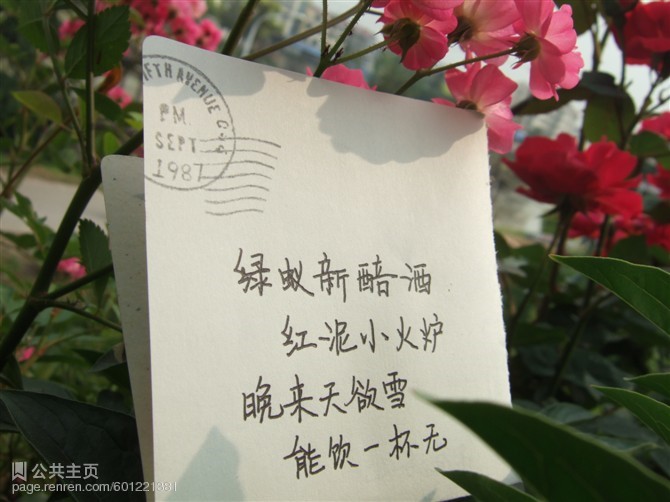 FTH AVENUE
PM
SEPT
1987
绿蚁新醅酒
红泥小火炉
晚来天欲雪
能饮一杯无
公共主页
page.renren.com/601221381